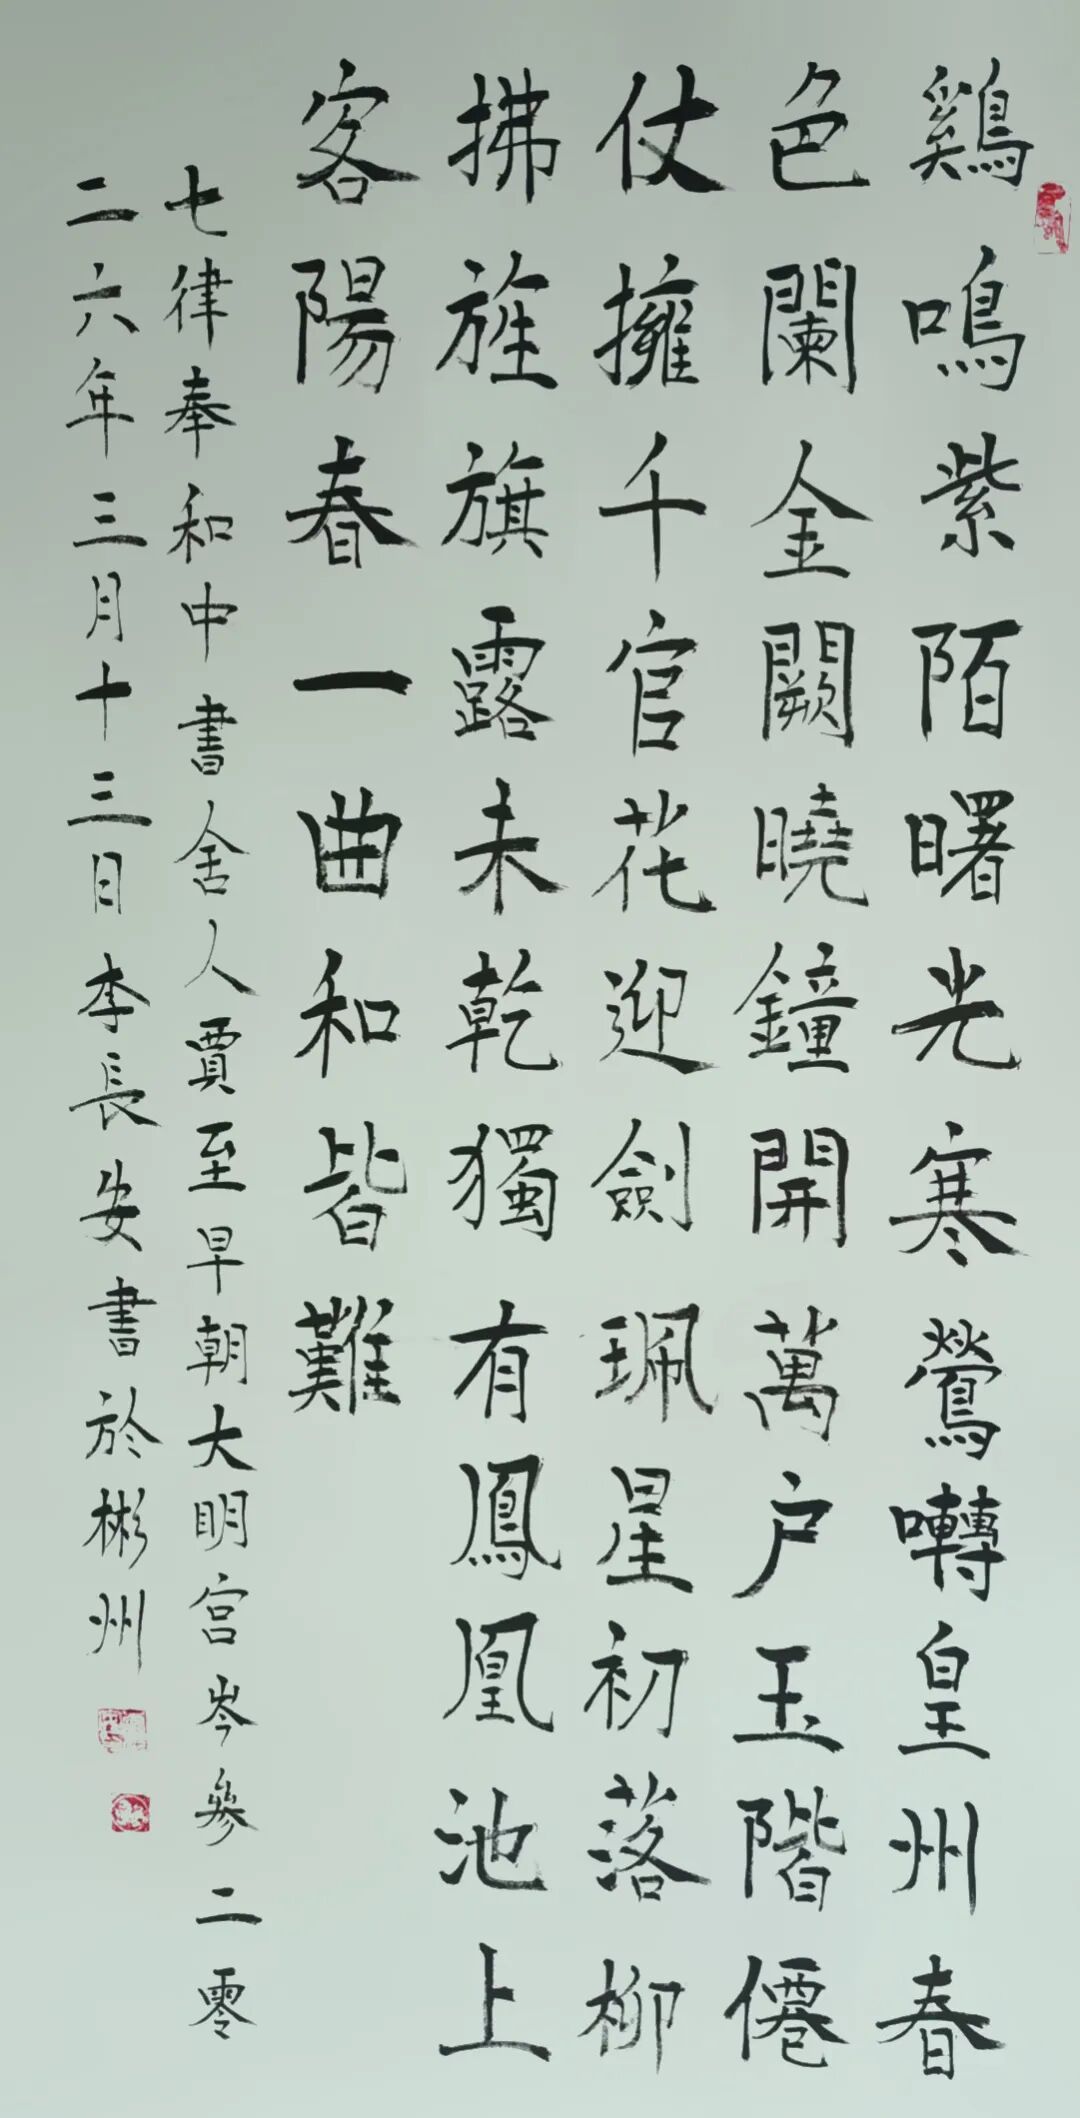 鷄鳴紫陌曙光寒鶯囀皇州春
色闌金闕曉鐘開萬户玉階僊
仗擁千官花迎劍珮星初落柳
拂旌旗露未乾獨有鳳凰池上
客陽春一曲和皆難
七律奉和中書舍人賈至早朝大明宫岑參二零
二六年三月十三日李長安書於彬州